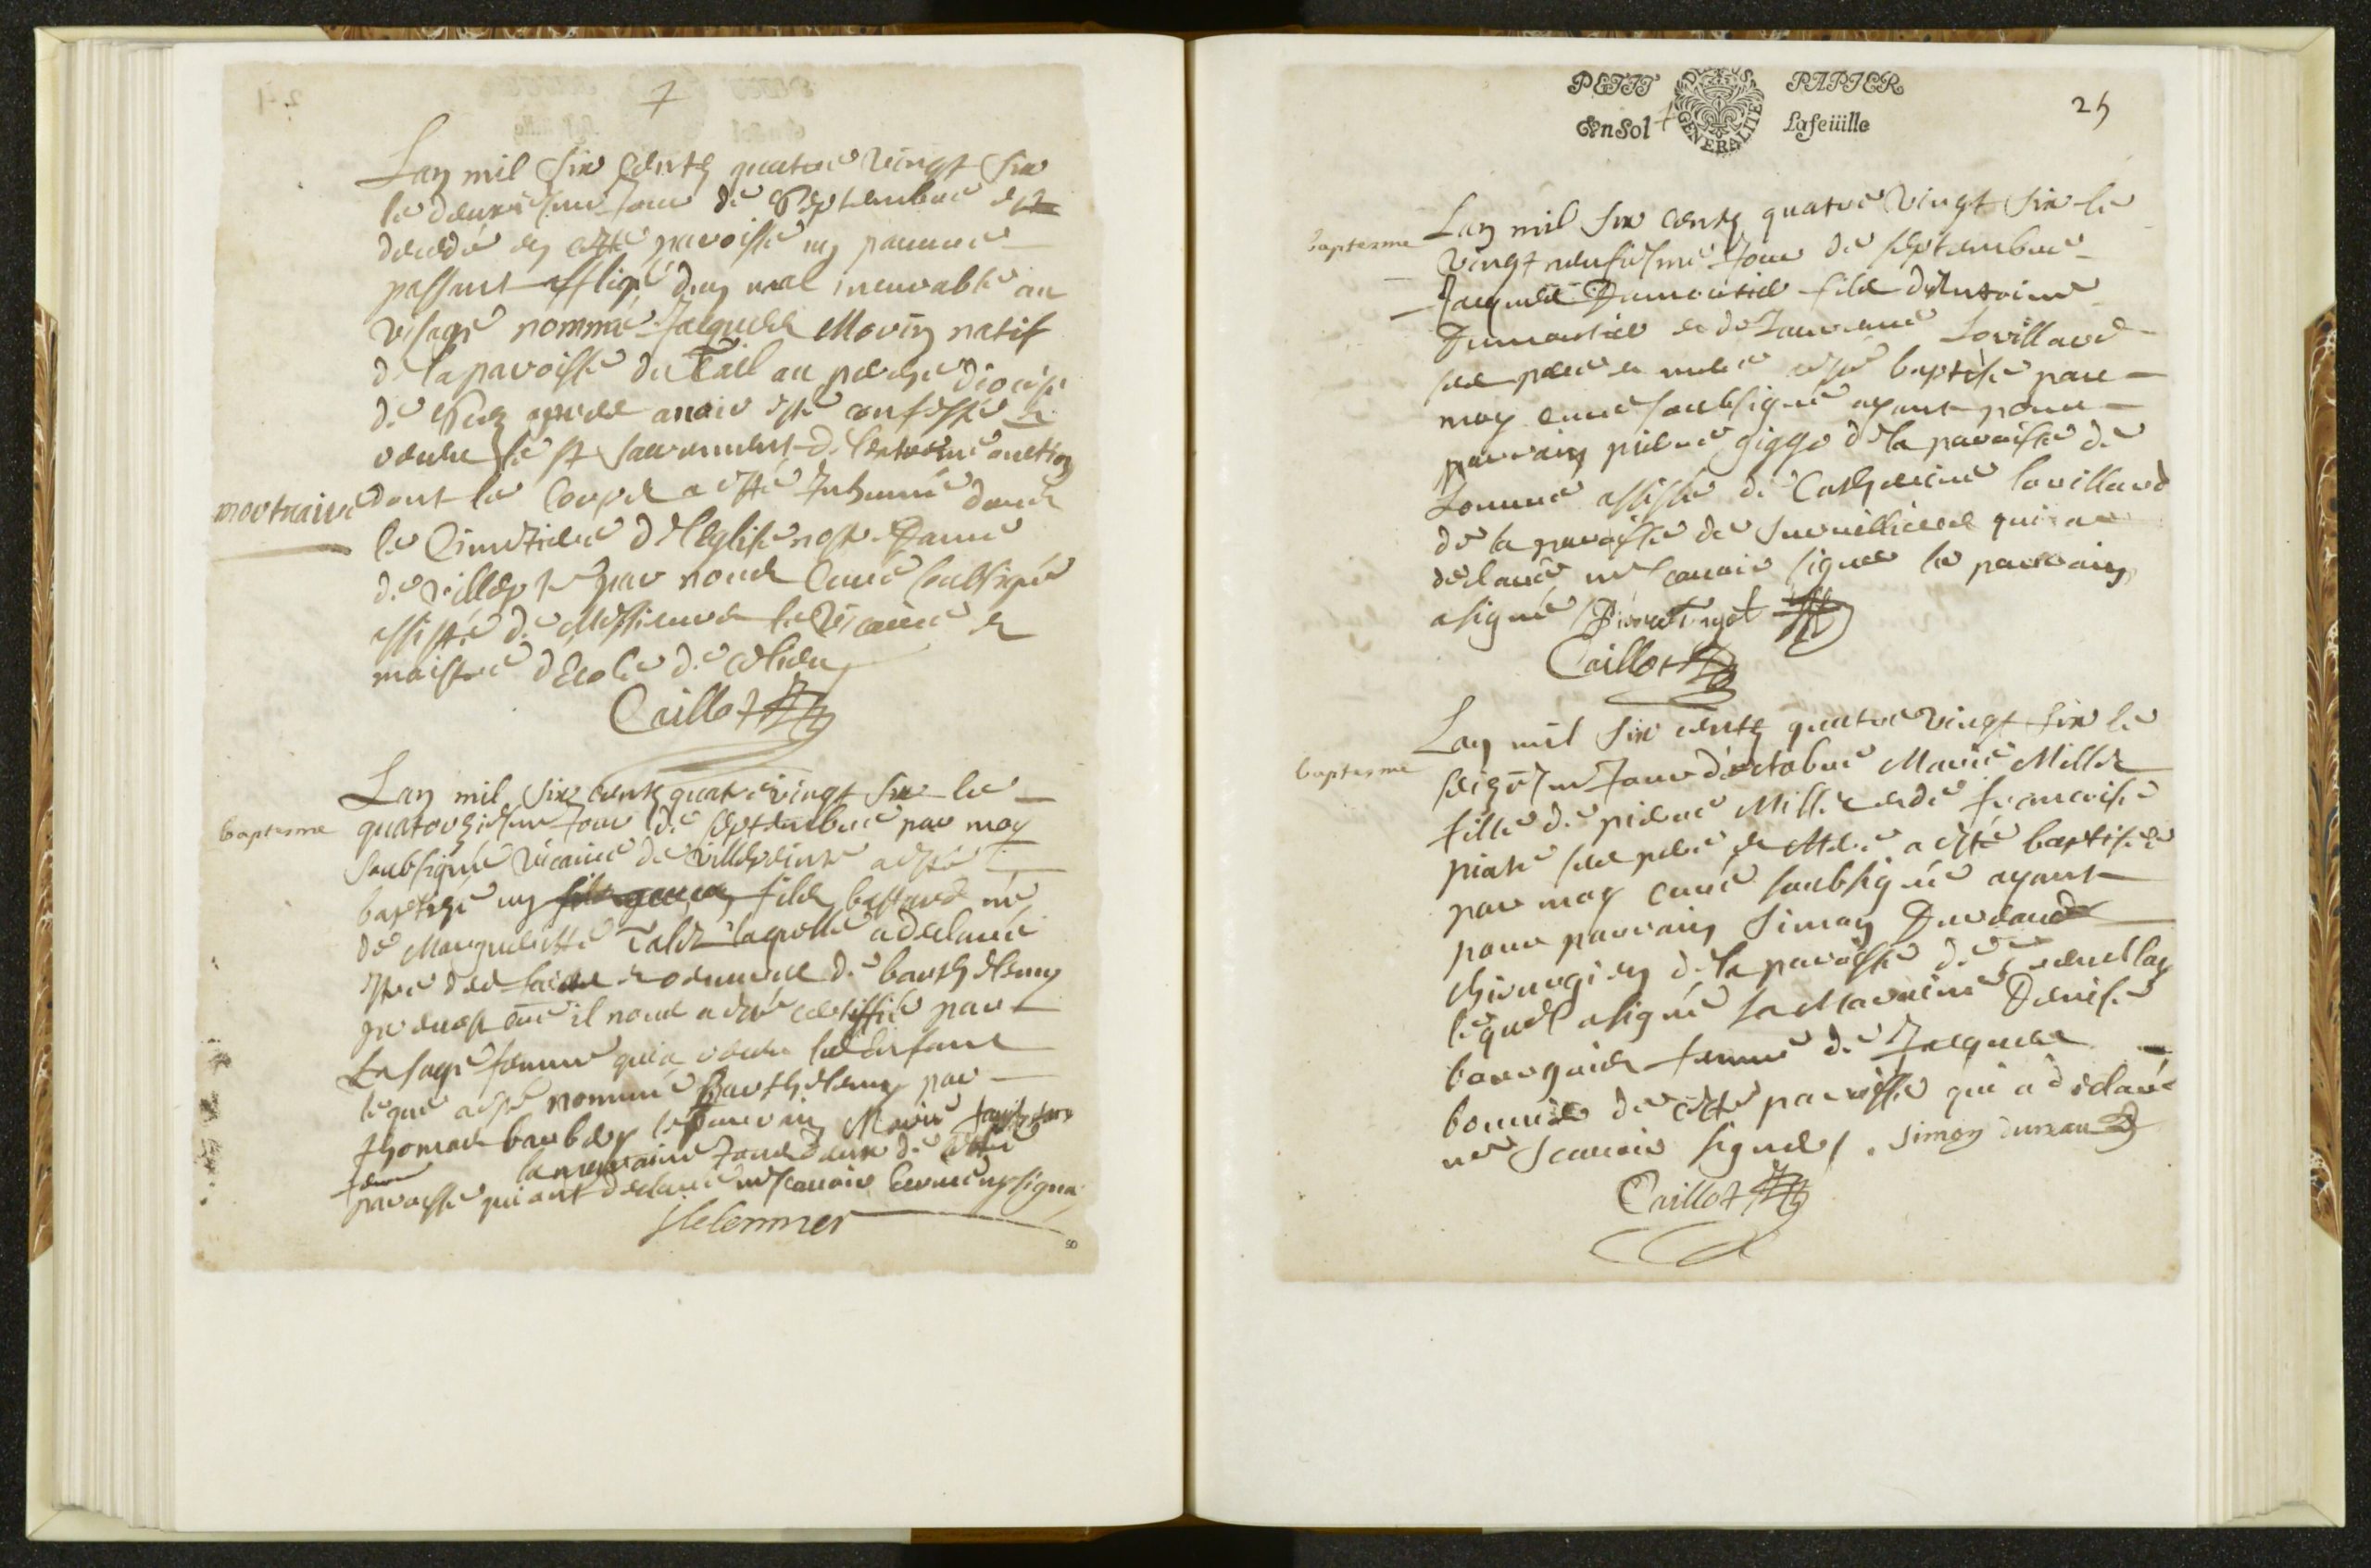 7
Lan mil six cents quatre vingt six
le deuxiesme jour de Septembre est
decedé en cette paroisse un pauvre
passant affligé d'un mal incurable au
visage nommé Jacques Morin natif
de la paroisse du Tail au perche diocese
de Sees apres avoir esté confessé &
receu le st sacrement de l'extreme onction
mortuaire
dont le corps a esté Inhumé dans
le Cimetiere de l'eglise nostre Dame
de villepte par nous Curé soubsigné
assisté de Messieurs le Vicaire et
maistre d'Ecole de ce lieu
Caillot
baptesme
Lan mil six cents quatre vingt six le
quatorziesme jour de septembre par moy
soubsigné vicaire de villepinte a esté
baptisé un fils bastard né
de Marguerite Talet laquelle a declaré
estre des faits et oeuvres de barthelemy
il nous a esté certiffié par
La sage femme qui a receu led Enfant
lequel a esté nommé Barthelemy par
thomas barbier le parrain Marie
la marraine tous deux de cette
paroisse qui ont declaré ne scavoir escrire ny signer
J leConnier
PETIT PAPIER
Un Sol La feüille
GENERALITE
25
baptesme
Lan mil six cents quatre vingt six le
vingt neufiesme jour de septembre
Jacques Dumoutier fils d'Antoine
Dumoutier et de Laurence Lovillard
ses pere et mere a esté baptisé par
moy curé soubsigné ayant pour
parrain pierre gigot de la paroisse de
Louvre assisté de Catherine lovillard
de la paroisse de Survilliers qui a
declaré ne scavoir signer le parrain
a signé Pierre Gigot
Caillot
baptesme
Lan mil six cents quatre vingt six le
seiziesme jour d'octobre Marie Millet
fille de pierre Millet et de francoise
piat ses pere et Mere a esté baptisée
par moy curé soubsigné ayant
pour parrain Simon Dureau
chirurgien de la paroisse de
lequel a signé La Marraine Denise
bourguier femme de Jacques
bonnier de cette paroisse qui a declaré
ne scavoir signer. Simon dureau
Caillot